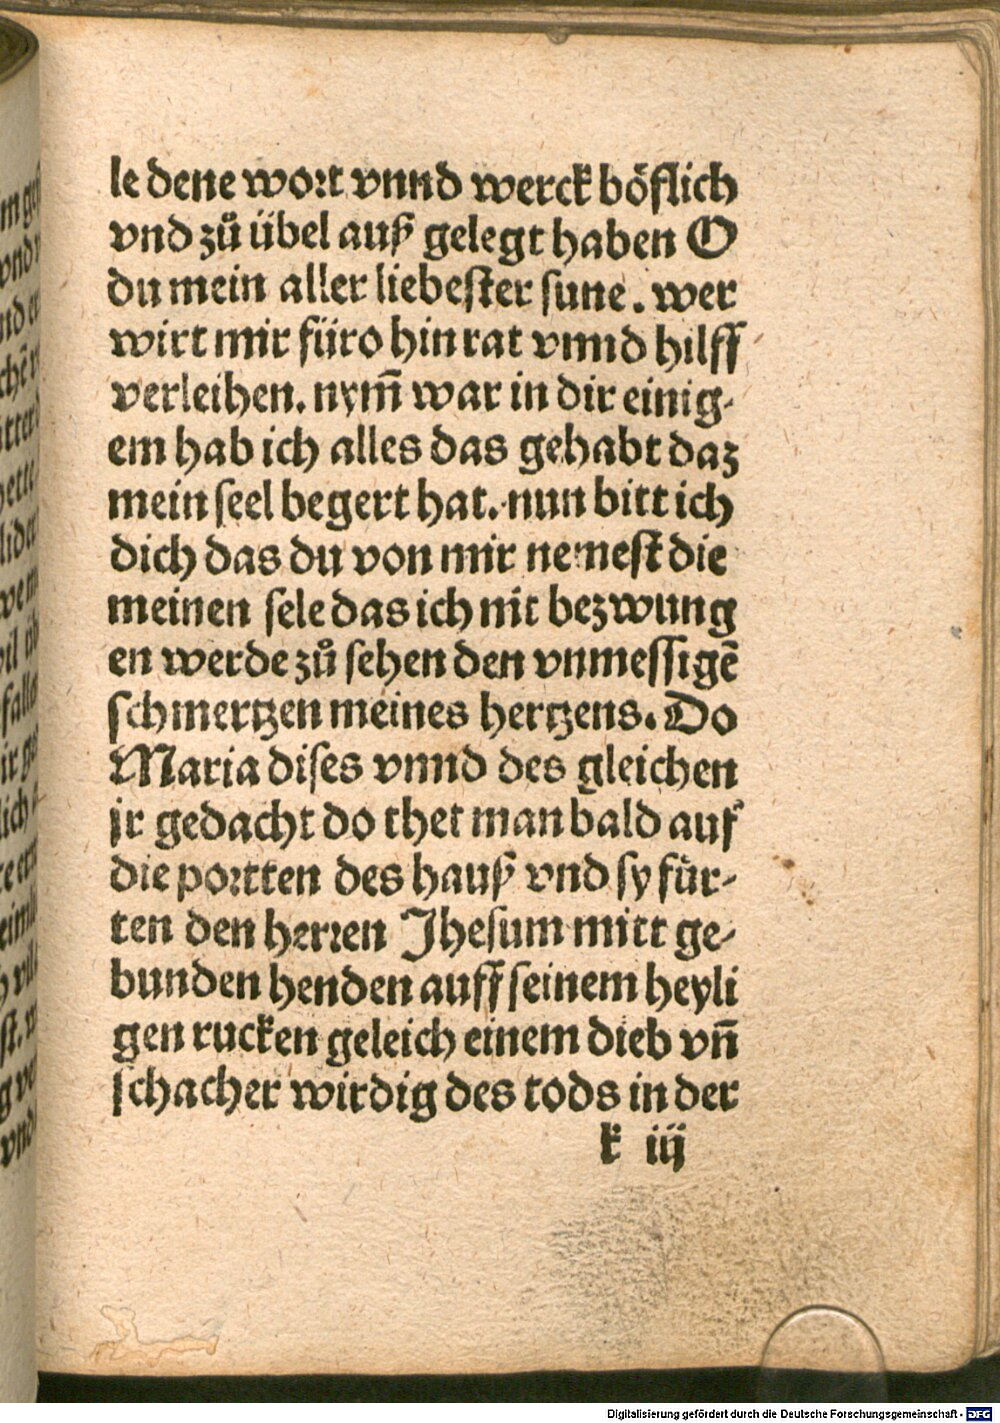 le dene wort vnnd werck böſlich
vnd zů übel auß gelegt haben O
du mein aller liebeſter ſune. wer
wirt mir füro hin rat vnnd hilff
verleihen. nym̄ war in dir einig-
em hab ich alles das gehabt daz
mein ſeel begert hat. nun bitt ich
dich das du von mir nemeſt die
meinen ſele das ich nit bezwung
en werde zů ſehen den vnmeſſigē
ſchmertzen meines hertzens. Do
Maria diſes vnnd des gleichen
jr gedacht do thet man bald auf
die portten des hauß vnd ſy für-
ten den herren Jheſum mitt ge-
bunden henden auff ſeinem heyli
gen rucken geleich einem dieb vn̄
ſchacher wirdig des tods in der
k iij
Digitalisierung gefördert durch die Deutsche Forschungsgemeinschaft - DFG